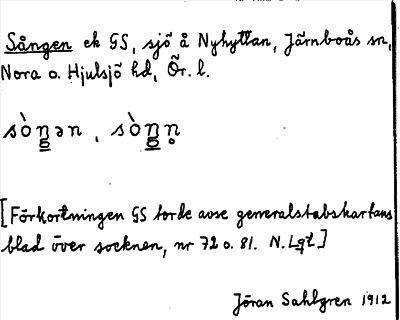 Sången ek GS, sjö å Nyhyttan, Järnboås sn,
Nora o. Hjulsjö hd, Ör. l.
sòŋən , sòŋn̥
[Förkortningen GS torde avse generalstabskartans
blad över socknen, nr 72 o. 81. N. Lgt]
Jöran Sahlgren 1912